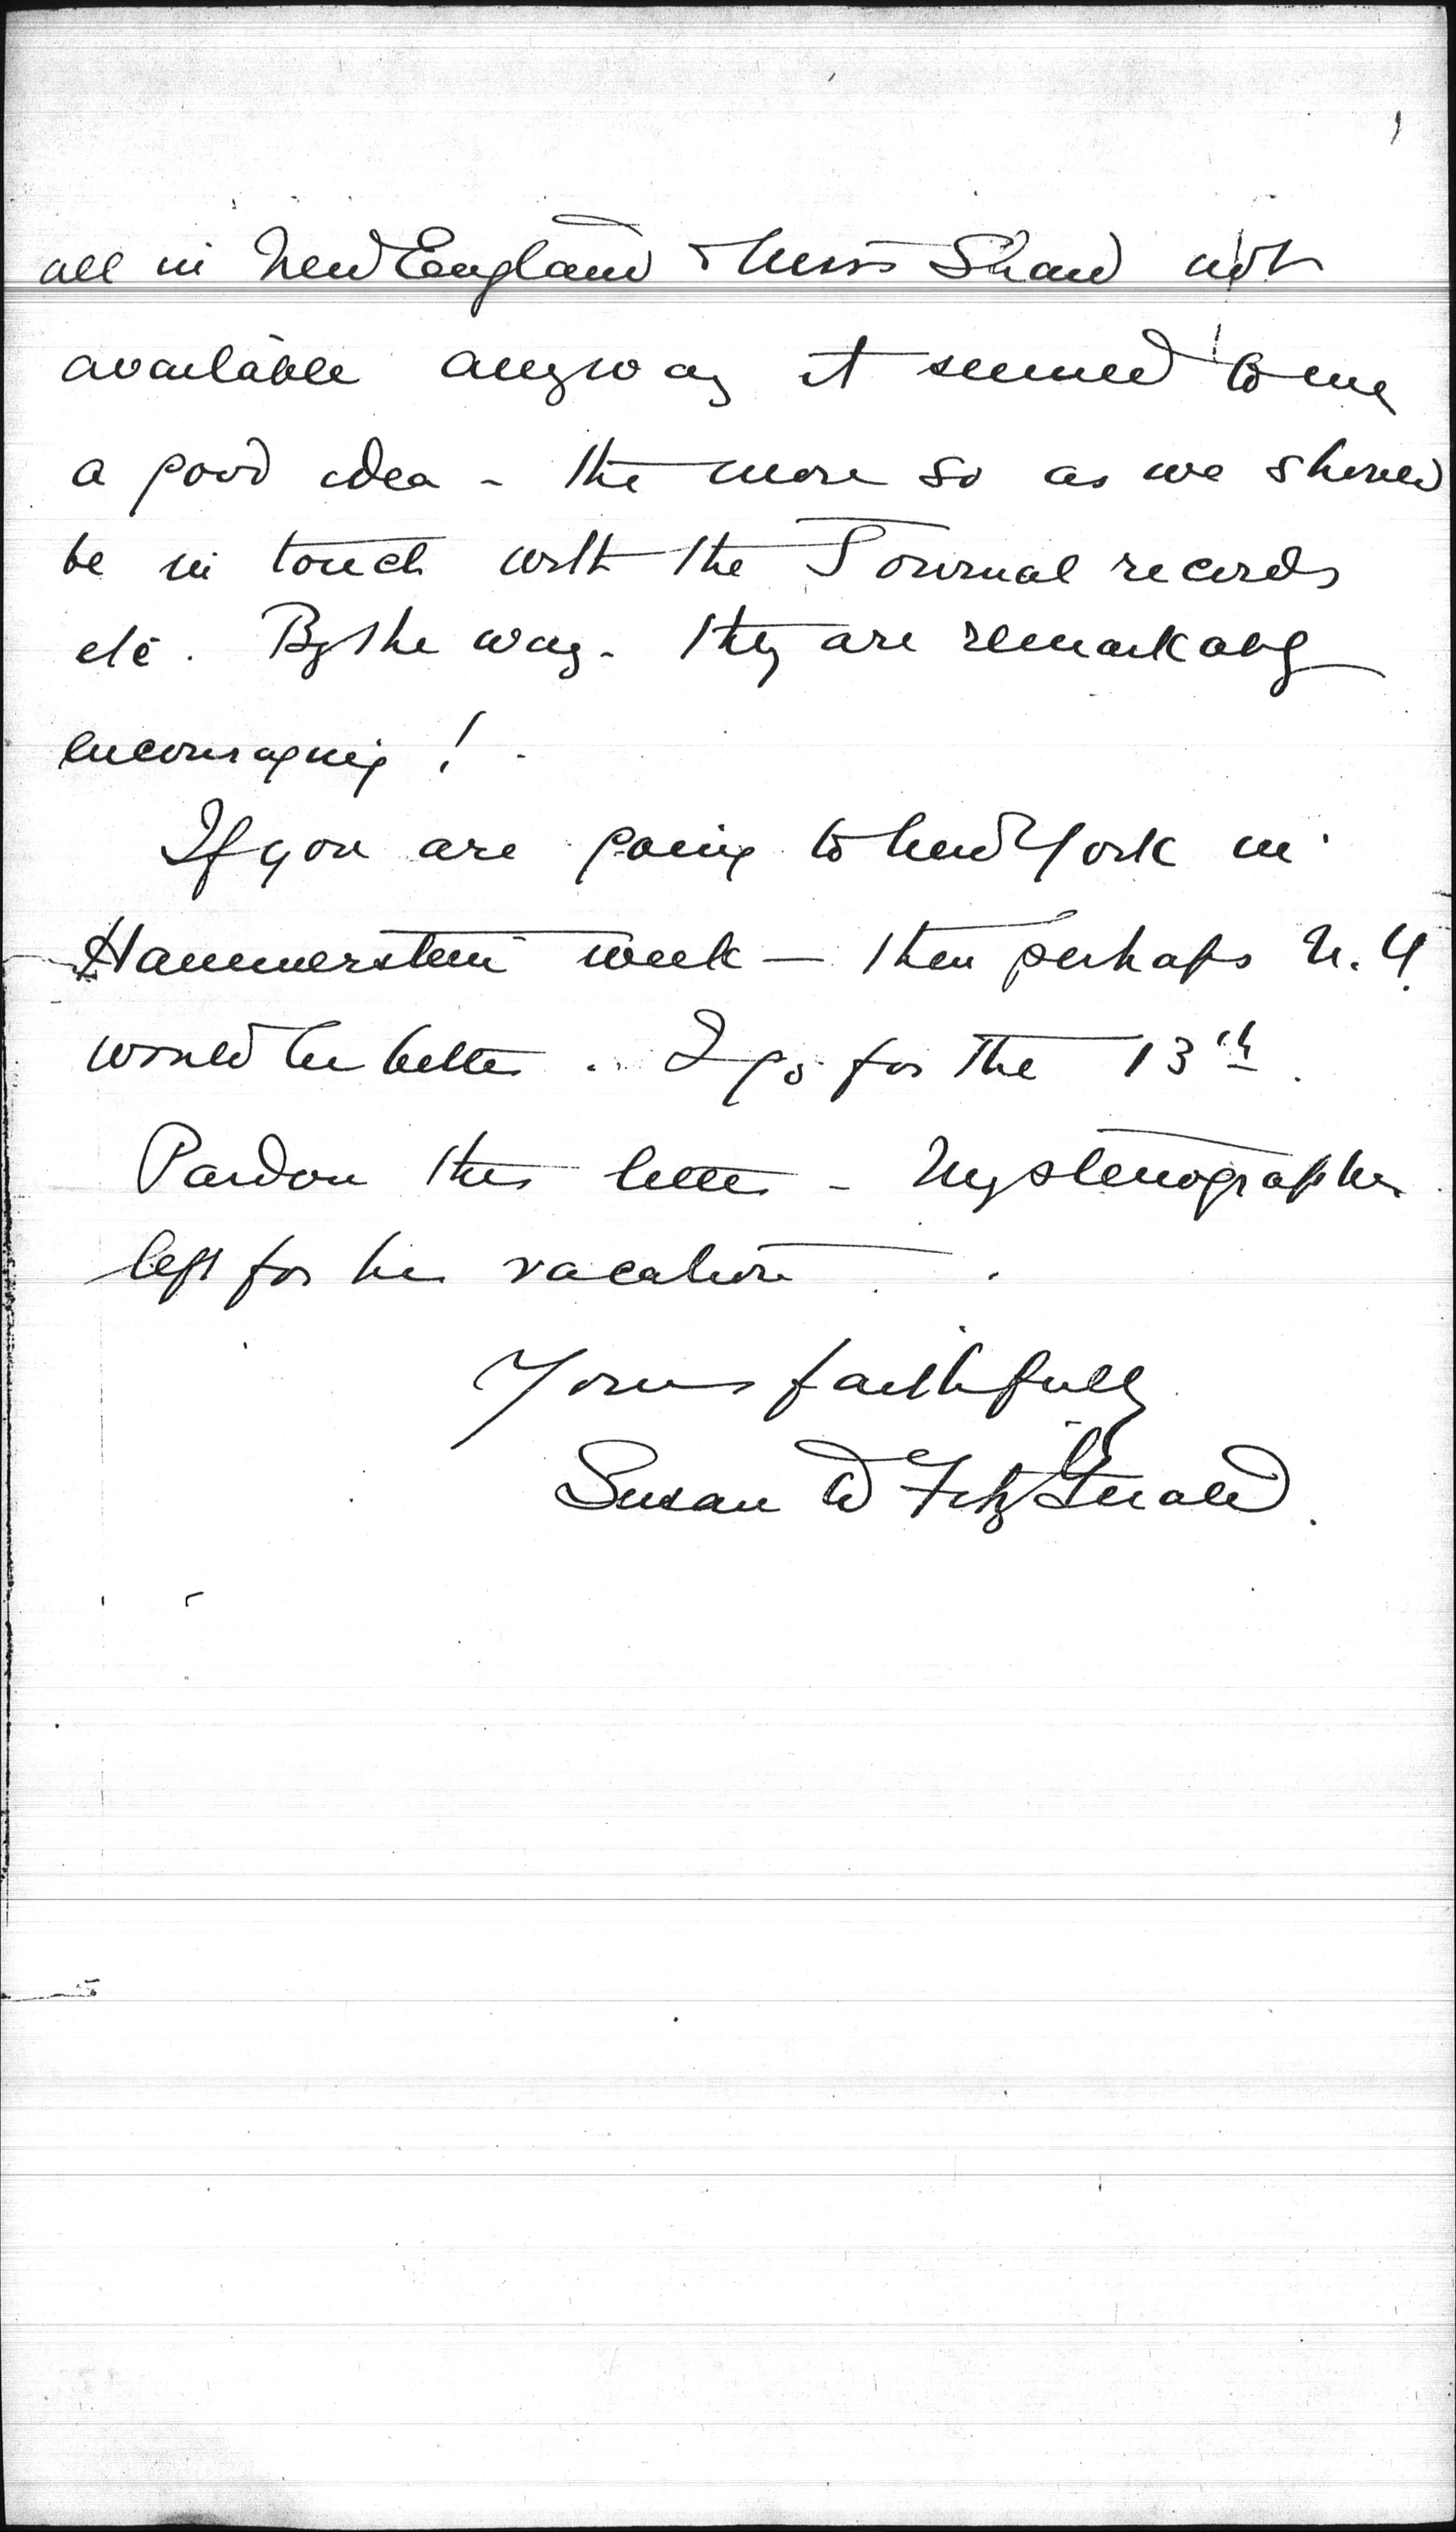 all in New England & Miss Shaw not
available anyway it seemed to me
a good idea - the more so as we should
be in touch with the Journal records
etc. By the way - they are remarkably
encouraging!
If you are going to New York in
Hammerstein week - then perhaps N.Y.
would be better. I go for the 13th.
Pardon this letter - My stenographer
left for her vacation.
Yours faithfully
Susan W FitzGerald.